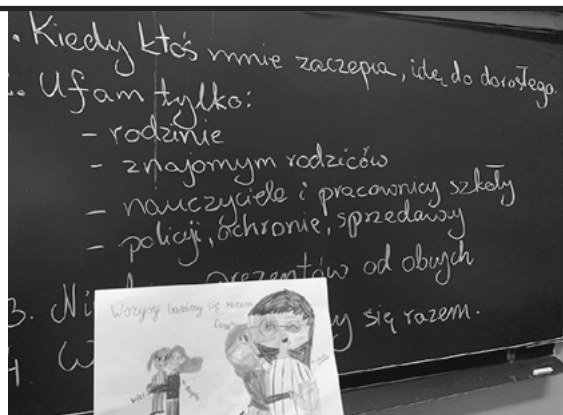 . Kiedy ktoś mnie zaczepia, idę do dorosłego.
. Ufam tylko:
- rodzinie
- znajomym rodziców
- nauczyciele i pracownicy szkoły
- policji, ochronie, sprzedawcy
3. prezentów od obcych
4. się razem.
Wszyscy bawimy się razem